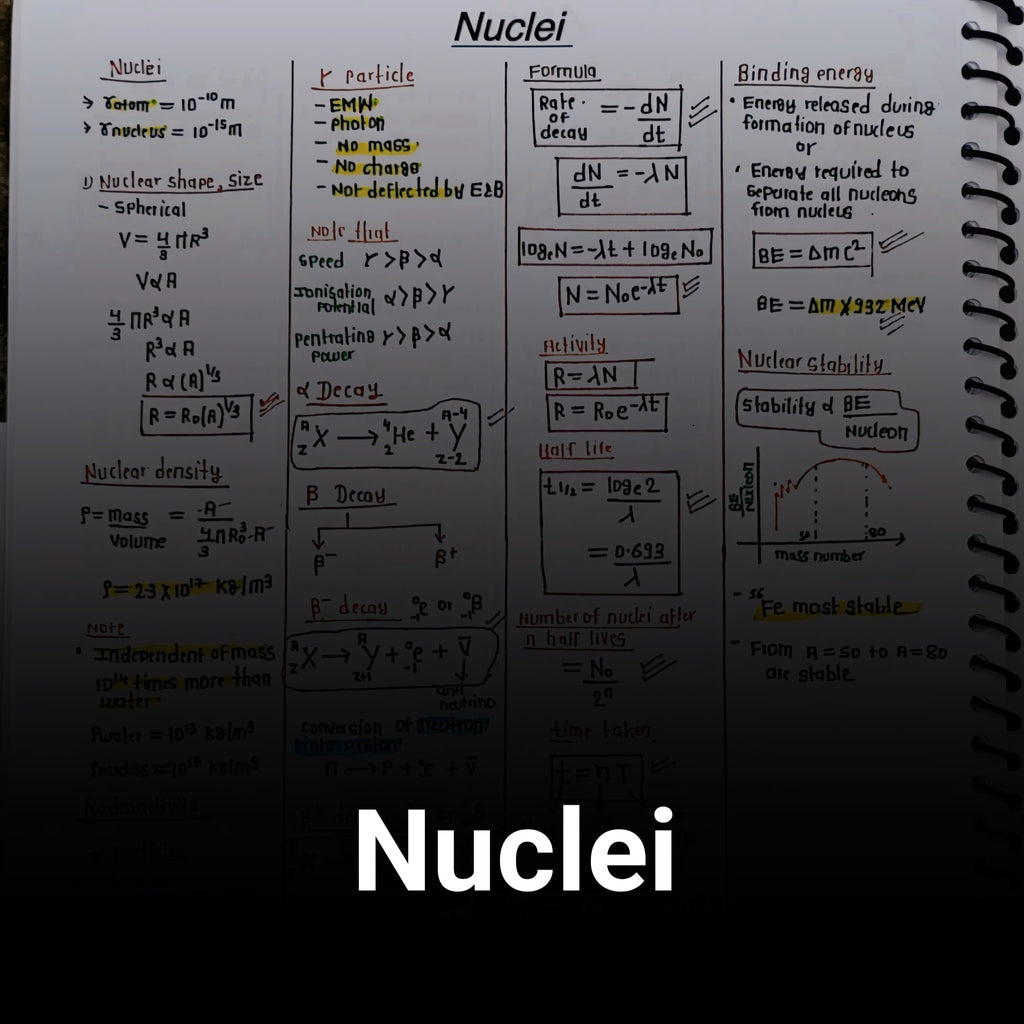 Nuclei
Nuclei
→ ratom = 10⁻¹⁰m
→ rnucleus = 10⁻¹⁵m
1) Nuclear shape, size
- Spherical
V = 4/3 πR³
V∝A
4/3 πR³∝A
R³∝A
R∝(A)^1/3
R = R₀(A)^1/3
Nuclear density
ρ = mass/volume = A/(4/3 πR₀³ A)
ρ = 2.3 X 10¹⁷ kg/m³
Note
• Independent of mass
10¹⁴ times more than
water
ρwater = 10¹³ kg/m³
ρnucleus = 10¹⁷ kg/m³
Radioactivity
γ particle
- EMW
- Photon
- No mass
- No charge
- Not deflected by E&B
Note that
Speed γ>β>α
Ionisation Potential α>β>γ
Pentrating Power γ>β>α
α Decay
ᴬ_Z X → ⁴₂He + ᴬ⁻⁴_Z-2 Y
β Decay
β⁻ β⁺
β⁻ decay ⁰₋₁e or ⁰₋₁β
ᴬ_Z X → ᴬ_Z+1 Y + ⁰₋₁e + ν̄
anti neutrino
conversion of neutron
into proton
n → P + ⁰₋₁e + ν̄
Formula
Rate of decay = -dN/dt
dN/dt = -λN
logₑN = -λt + logₑN₀
N = N₀e^-λt
Activity
R = λN
R = R₀e^-λt
Half life
t1/2 = logₑ2/λ
= 0.693/λ
Number of nuclei after
n half lives
= N₀/2ⁿ
time taken
t = nT
Binding energy
• Energy released during
formation of nucleus
or
• Energy required to
separate all nucleons
from nucleus
BE = Δmc²
BE = Δm X 932 MeV
Nuclear stability
Stability ∝ BE/Nucleon
BE/Nucleon
80
mass number
- ⁵⁶Fe most stable
- From A=50 to A=80
are stable
Nuclei